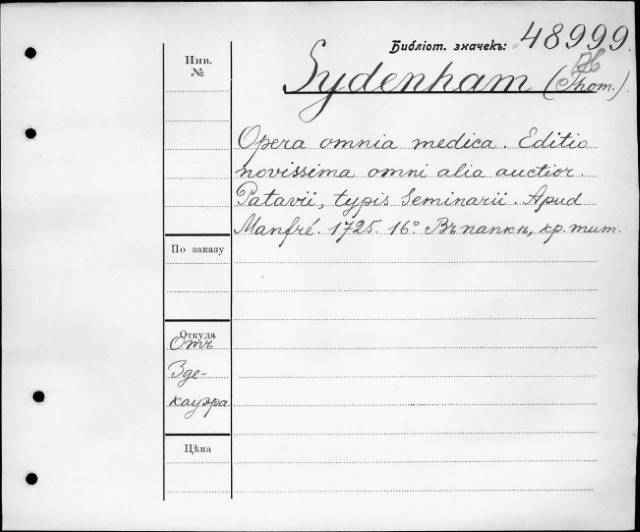 Библіот. значекъ: 48999.
Инв.
№
Sydenham (Thom.).
Opera omnia medica. Editio
novissima omni alia auctior.
Patavii, typis Seminarii. Apud
Manfré. 1725. 16° Въ папкѣ, хр. тит.
По заказу
Откуда
Отъ
Зде-
кауэра
Цѣна